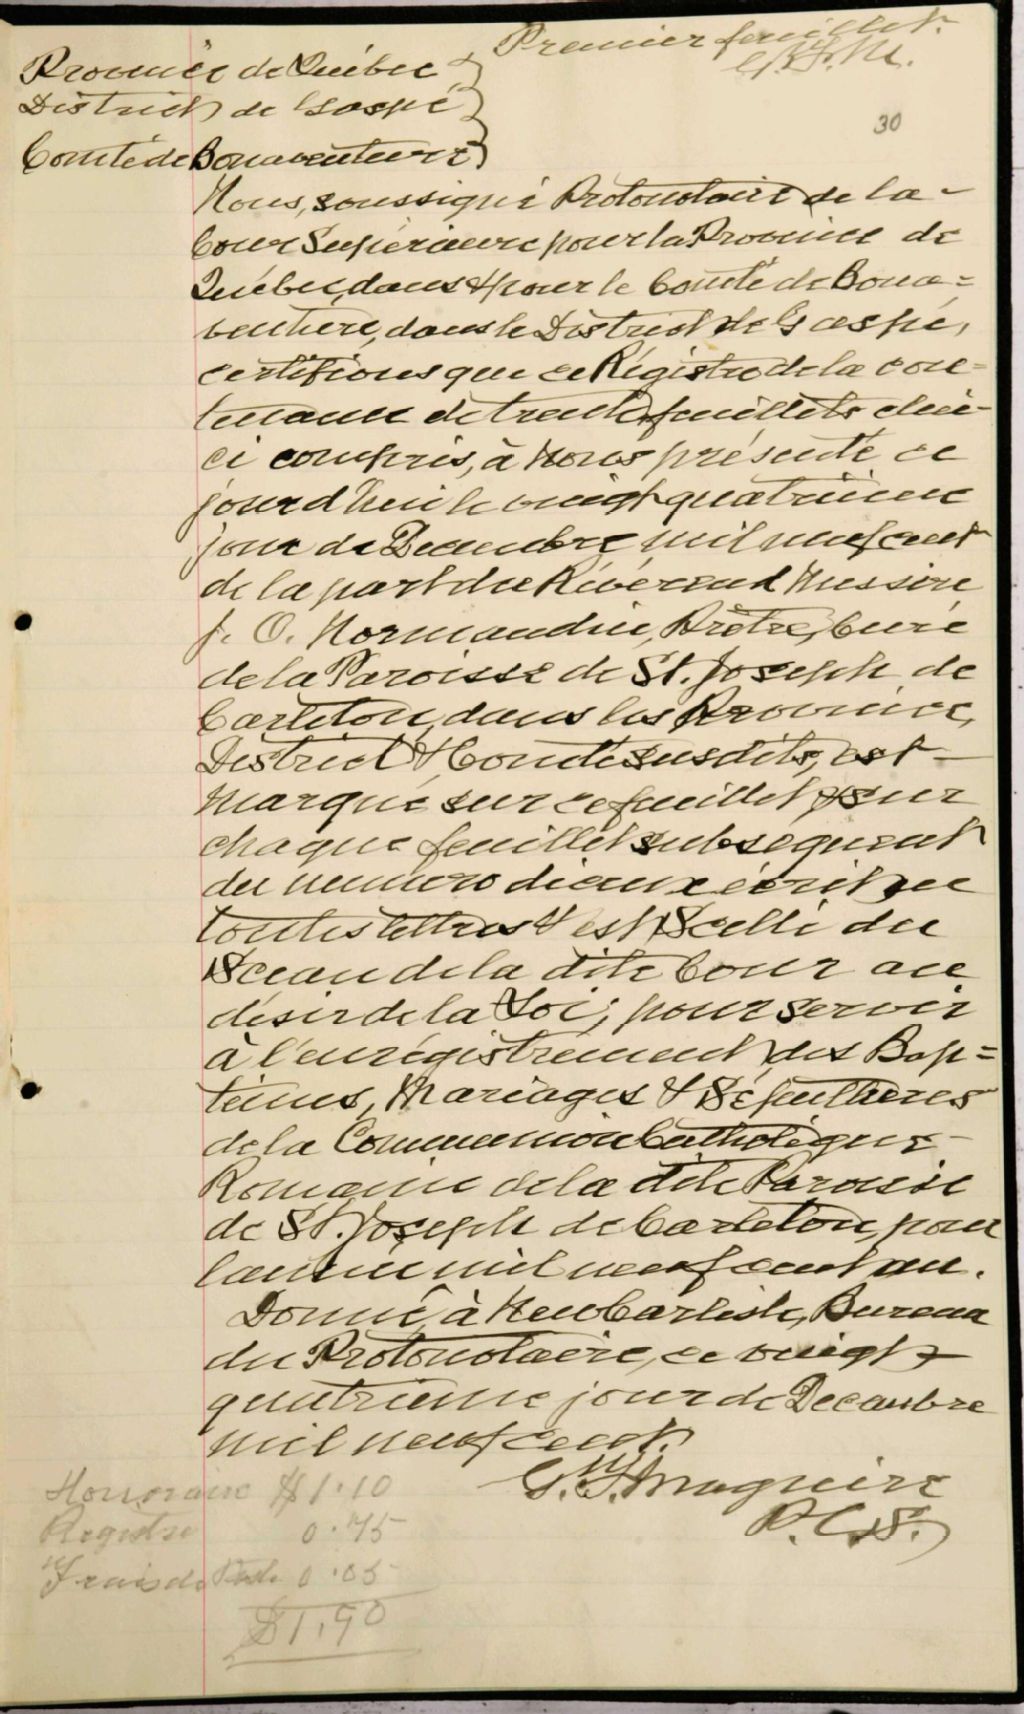 Premier feuillet.
Province de Québec
District de Gaspé
30
Comté de Bonaventure
Nous, soussigné Protonotaire de la
Cour Supérieure pour la Province de
Québec, dans & pour le Comté de Bona=
venture, dans le District de Gaspé,
certifions que ce Régistre de la con=
tenance de trente feuillets, celui-
ci compris, à Nous présenté ce
jourd'hui le vingt quatrième
jour de Décembre mil neuf cent
de la part du Révérend Messire
J. O. Normandin, Prêtre, Curé
de la Paroisse de St. Joseph de
Carleton, dans les Province,
District & Comté susdits, est
marqué sur ce feuillet & sur
chaque feuillet subséquent
du numéro d'iceux écrit en
toutes lettres & est Scellé du
Sceau de la dite Cour au
désir de la Loi; pour servir
à l'enrégistrement des Bap=
têmes, Mariages & Sépultures
de la Communion Catholique
Romaine de la dite Paroisse
de St. Joseph de Carleton, pour
l'année mil neuf cent un.
Donné à New Carlisle, Bureau
du Protonotaire, ce vingt
quatrième jour de Décembre
mil neuf cent.
Honoraire $1.10
Maguire
Registre 0.75
P.C.S.
Frais de Poste 0.05
$1.90